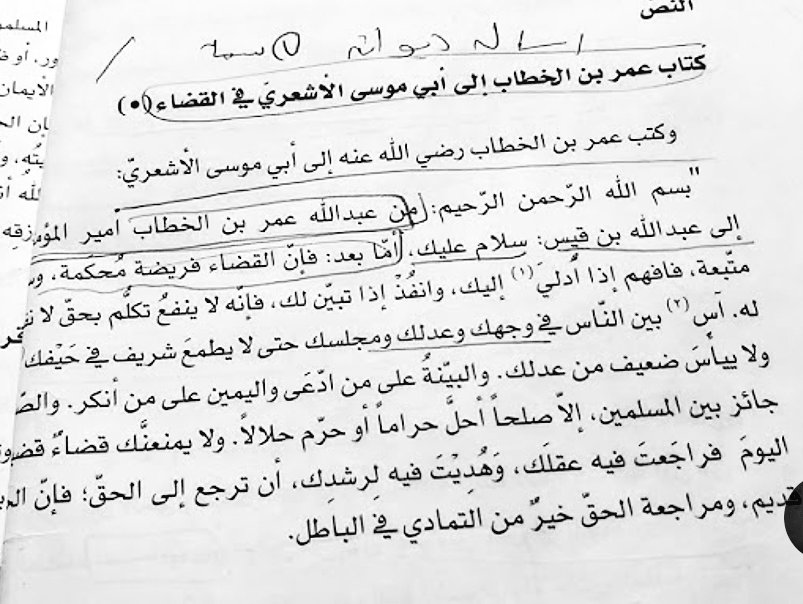 النص
رسالة ديوانية
كتاب عمر بن الخطاب إلى أبي موسى الأشعريّ في القضاء (•)
وكتب عمر بن الخطاب رضي الله عنه إلى أبي موسى الأشعريّ:
"بسم الله الرّحمن الرّحيم: من عبدالله عمر بن الخطاب أمير المؤم
إلى عبدالله بن قيس: سلام عليك، أمّا بعد: فإنّ القضاء فريضة مُحكَمة، وس
متّبعة، فافهم إذا أُدليَ (١) إليك، وانفُذْ إذا تبيّن لك، فإنّه لا ينفعُ تكلُّم بحقّ لا نف
له. آسِ (٢) بين النّاس في وجهك وعدلك ومجلسك حتى لا يطمعَ شريف في حَيْفك
ولا ييأسَ ضعيف من عدلك. والبيّنةُ على من ادّعَى واليمين على من أنكر. والصّ
جائز بين المسلمين، إلاّ صلحاً أحلَّ حراماً أو حرّم حلالاً. ولا يمنعنَّك قضاءٌ قضيت
اليومَ فراجَعتَ فيه عقلَك، وَهُدِيْتَ فيه لِرشدِك، أن ترجع إلى الحقّ؛ فإنّ الح
قديم، ومراجعة الحقّ خيرٌ من التمادي في الباطل.
المسلم
ور، أو
الأيمان